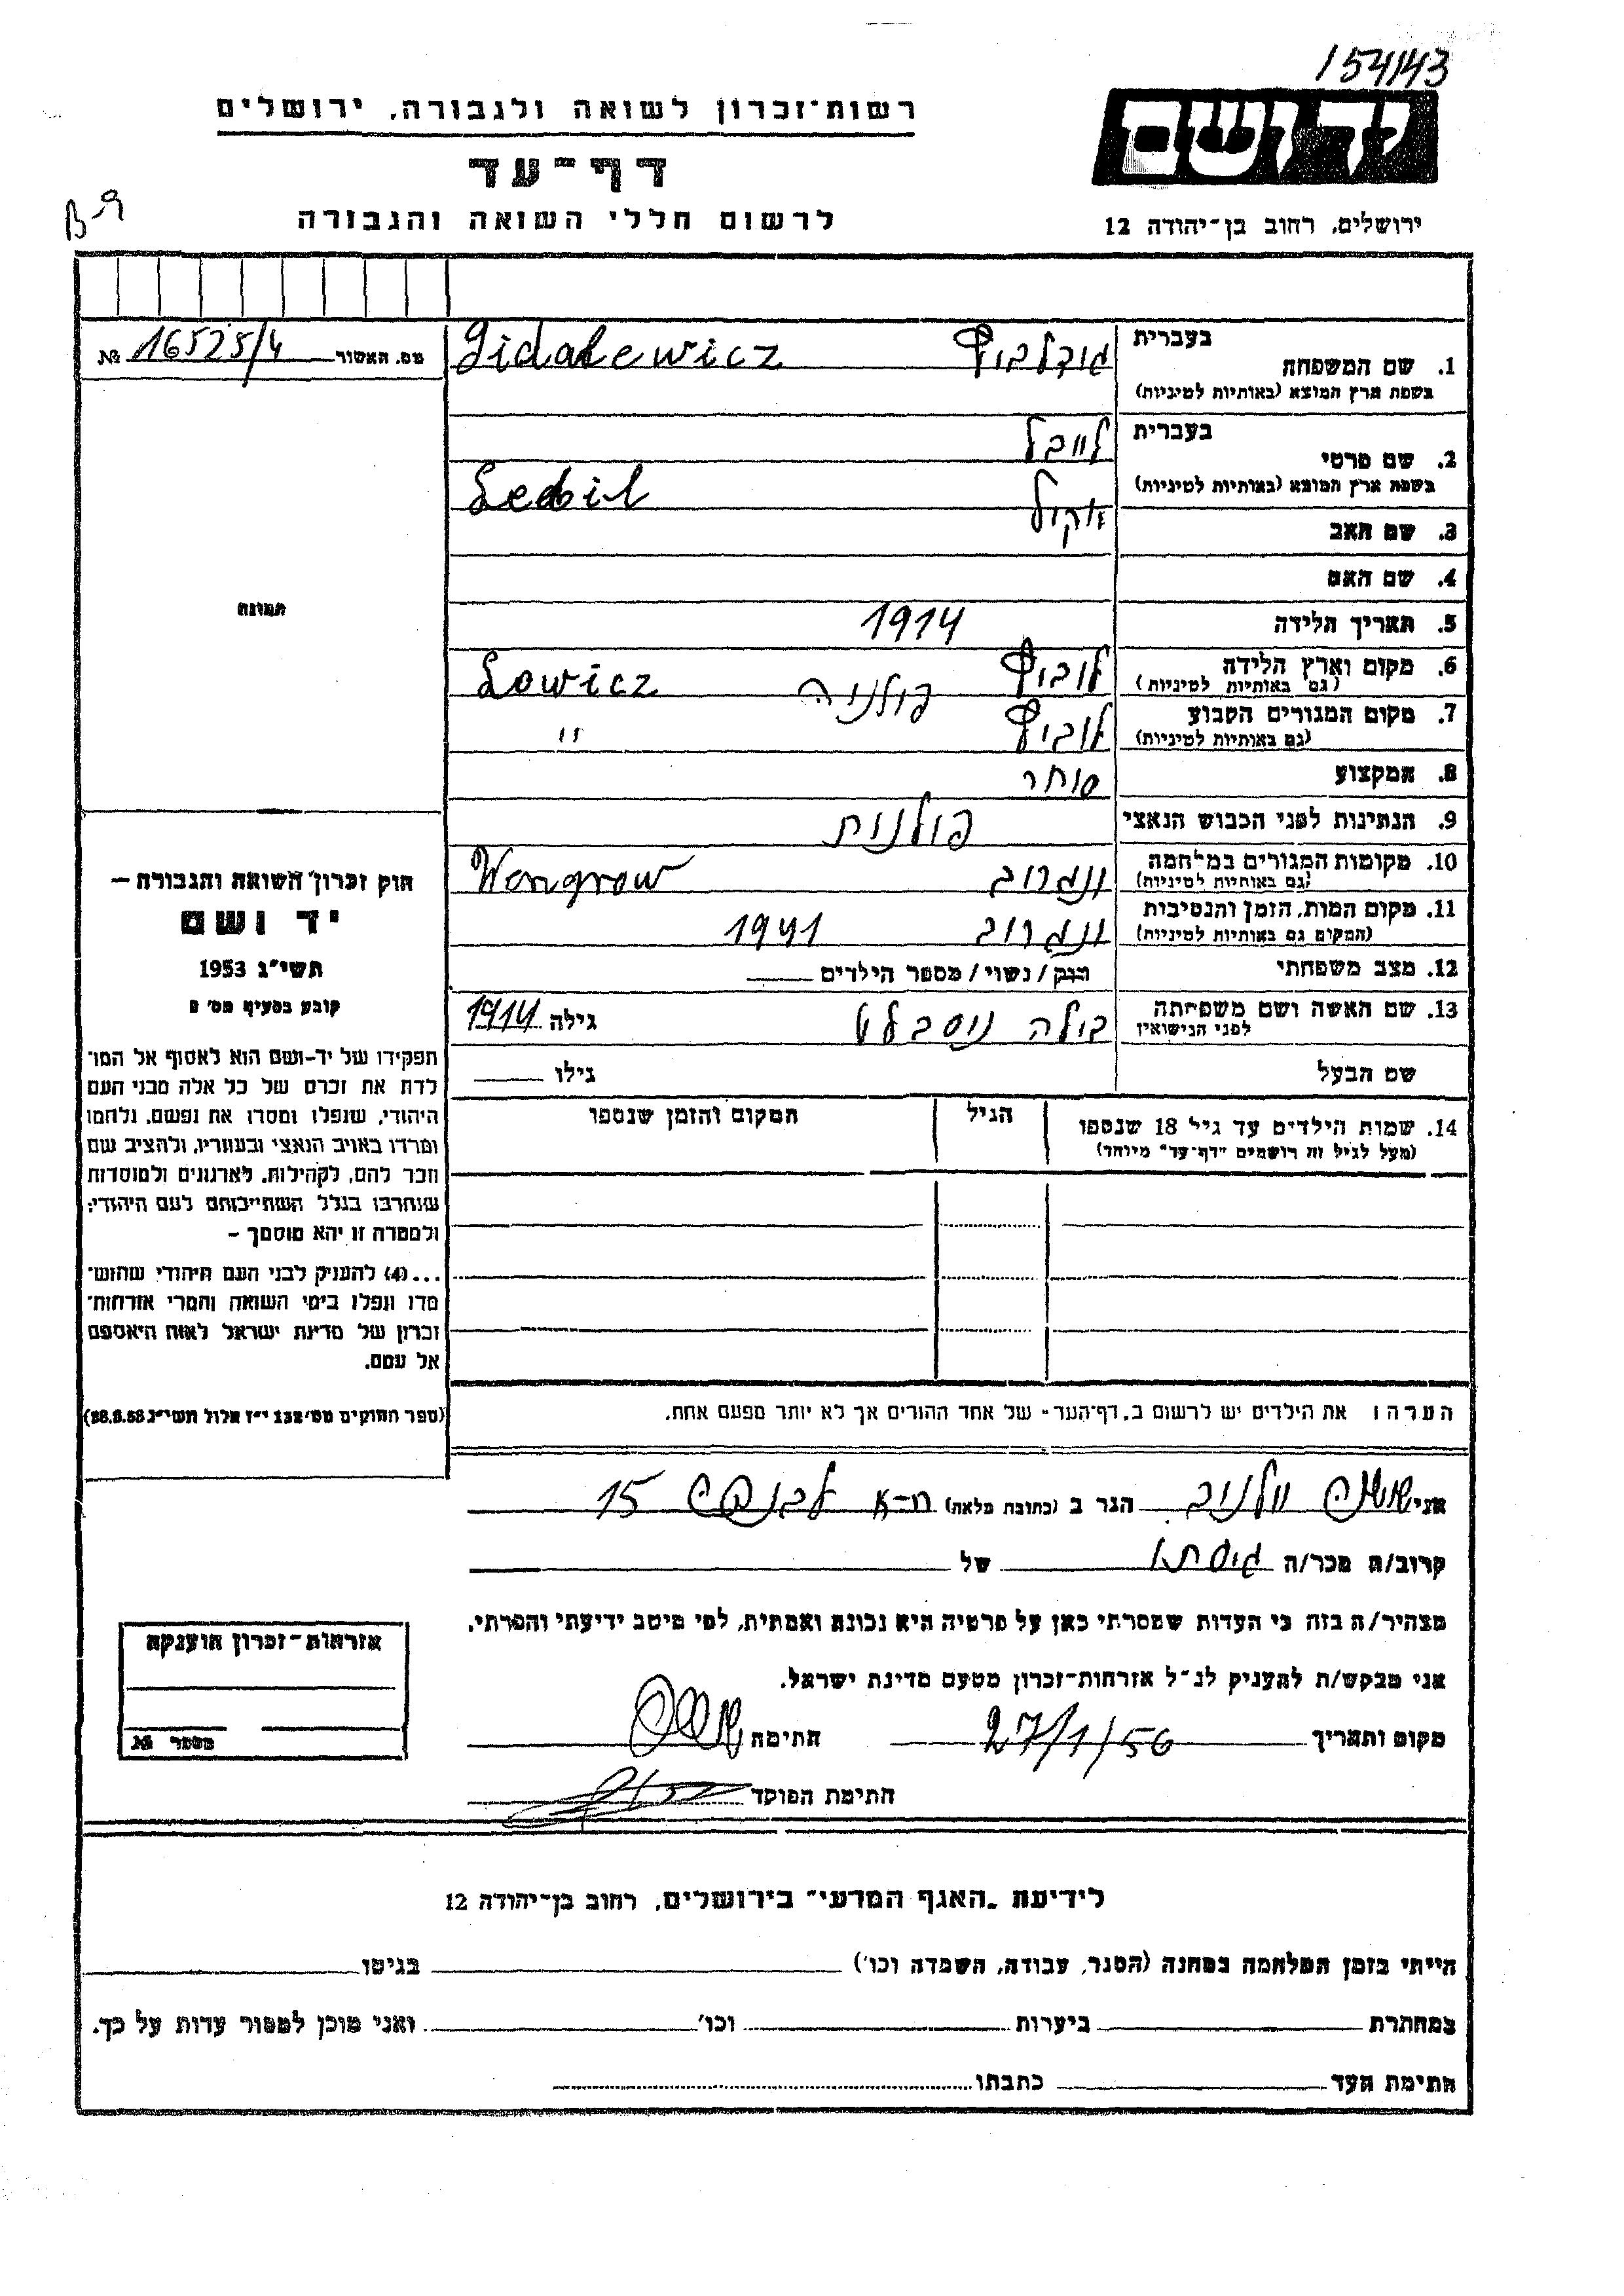 154143
יד ושם
רשות־זכרון לשואה ולגבורה, ירושלים
דף־עד
לרשום חללי השואה והגבורה
ירושלים, רחוב בן־יהודה 12
B-9
מס. האשור 16525/4 №
בעברית
1. שם המשפחה Gidalewicz
בשפת ארץ המוצא (באותיות לטיניות)
בעברית לייבל
2. שם פרטי
בשפת ארץ המוצא (באותיות לטיניות)
3. שם האב
4. שם האם
תמונה
5. תאריך הלידה 1914
6. מקום וארץ הלידה לוביץ פולניה Lowicz
(גם באותיות לטיניות)
7. מקום המגורים הקבוע לוביץ "
(גם באותיות לטיניות)
8. המקצוע סוחר
9. הנתינות לפני הכבוש הנאצי פולנית
10. מקומות המגורים במלחמה ונגרוב Wengrow
(גם באותיות לטיניות)
11. מקום המות, הזמן והנסיבות ונגרוב 1941
(המקום גם באותיות לטיניות)
12. מצב משפחתי רווק / נשוי / מספר הילדים
13. שם האשה ושם משפחתה גילה 1914
לפני הנישואין
שם הבעל גילו
14. שמות הילדים עד גיל 18 שנספו הגיל המקום והזמן שנספו
(מעל לגיל זה רושמים "דף־עד" מיוחד)
חוק זכרון השואה והגבורה —
יד ושם
תשי"ג 1953
קובע בסעיף מס' 2
תפקידו של יד-ושם הוא לאסוף אל המו־
לדת את זכרם של כל אלה מבני העם
היהודי, שנפלו ומסרו את נפשם, נלחמו
ומרדו באויב הנאצי ובעוזריו, ולהציב שם
וזכר להם, לקהילות, לארגונים ולמוסדות
שנחרבו בגלל השתייכותם לעם היהודי;
ולמטרה זו יהא מוסמך –
...(4) להעניק לבני העם היהודי שהוש־
מדו ונפלו בימי השואה והמרי אזרחות־
זכרון של מדינת ישראל לאות היאספם
אל עמם.
(ספר החוקים מס' 132 י"ז אלול תשי"ג 28.8.53)
הערה: את הילדים יש לרשום ב„דף־העד" של אחד ההורים אך לא יותר מפעם אחת.
אני הגר ב (כתובת מלאה) ת-א 15
קרוב/ה מכר/ה גיסתו של
מצהיר/ה בזה כי העדות שמסרתי כאן על פרטיה היא נכונה ואמתית, לפי מיטב ידיעתי והכרתי.
אני מבקש/ת להעניק לנ"ל אזרחות-זכרון מטעם מדינת ישראל.
מקום ותאריך 27/1/56 חתימה
חתימת הפוקד
אזרחות־זכרון הוענקה
מספר №
לידיעת „האגף המדעי" בירושלים, רחוב בן־יהודה 12
הייתי בזמן המלחמה במחנה (הסגר, עבודה, השמדה וכו') בגיטו
במחתרת ביערות וכו' ואני מוכן למסור עדות על כך.
חתימת העד כתבתו